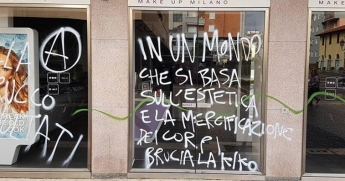 MAKE UP MILANO
IN UN MONDO
CHE SI BASA
SULL'ESTETICA
E LA MERCIFICAZIONE
DEI CORPI
BRUCIA LA KIKO
A
UCCO
TATI